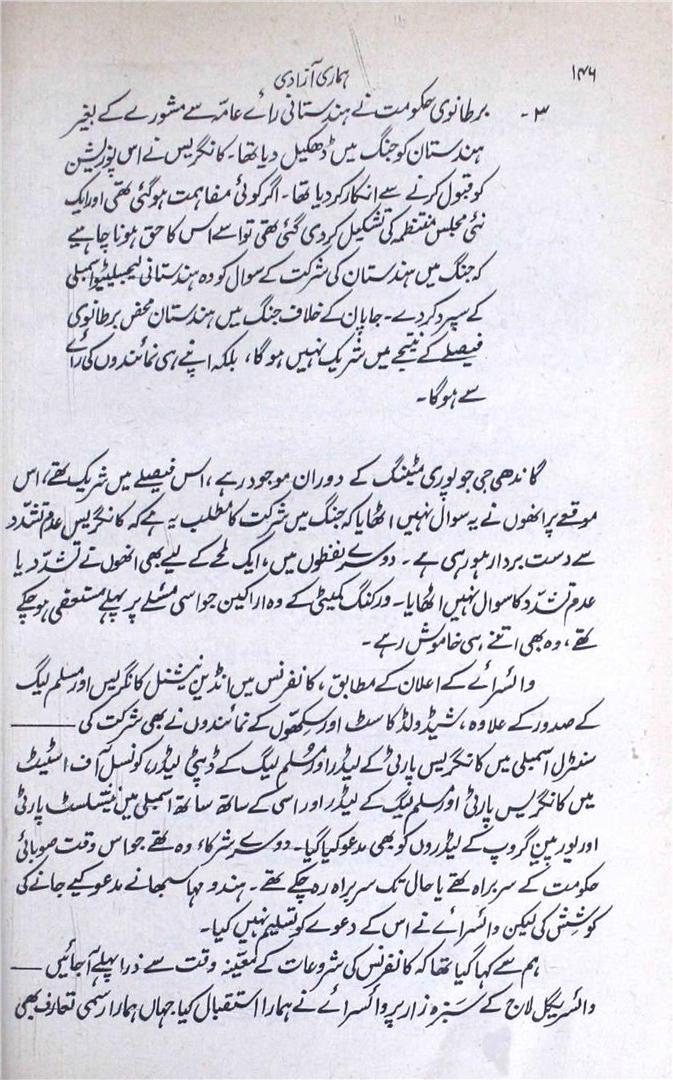 ۱۴۶
ہماری آزادی
۳۔ برطانوی حکومت نے ہندستانی رائے عامّہ سے مشورے کے بغیر
ہندستان کو جنگ میں ڈھکیل دیا تھا۔ کانگریس نے اس پوزیشن
کو قبول کرنے سے انکار کر دیا تھا۔ اگر کوئی مفاہمت ہو گئی تھی اور ایک
نئی مجلس منتظمہ کی تشکیل کر دی گئی تھی تو اسے اس کا حق ہونا چاہیے
کہ جنگ میں ہندستان کی شرکت کے سوال کو وہ ہندستانی لیجسلیٹیو اسمبلی
کے سپرد کر دے۔ جاپان کے خلاف جنگ میں ہندستان محض برطانوی
فیصلے کے نتیجے میں شریک نہیں ہوگا، بلکہ اپنے ہی نمائندوں کی رائے
سے ہوگا۔
گاندھی جی جو پوری میٹنگ کے دوران موجود رہے، اس فیصلے میں شریک تھے، اس
موقعے پر انھوں نے یہ سوال نہیں اٹھایا کہ جنگ میں شرکت کا مطلب یہ ہے کہ کانگریس عدم تشدّد
سے دست بردار ہو رہی ہے۔ دوسرے لفظوں میں، ایک لمحے کے لیے بھی انھوں نے تشدّد یا
عدم تشدّد کا سوال نہیں اٹھایا۔ ورکنگ کمیٹی کے وہ اراکین جو اسی مسئلے پر پہلے مستعفی ہو چکے
تھے، وہ بھی اتنے ہی خاموش رہے۔
وائسرائے کے اعلان کے مطابق، کانفرنس میں انڈین نیشنل کانگریس اور مسلم لیگ
کے صدور کے علاوہ، شیڈولڈ کاسٹ اور سکھوں کے نمائندوں نے بھی شرکت کی ———
سنٹرل اسمبلی میں کانگریس پارٹی کے لیڈر اور مسلم لیگ کے ڈپٹی لیڈر، کونسل آف اسٹیٹ
میں کانگریس پارٹی اور مسلم لیگ کے لیڈر اور اسی کے ساتھ ساتھ اسمبلی میں نیشنلسٹ پارٹی
اور یورپین گروپ کے لیڈروں کو بھی مدعو کیا گیا۔ دوسرے شرکاء وہ تھے جو اس وقت صوبائی
حکومت کے سربراہ تھے یا حال تک سربراہ رہ چکے تھے۔ ہندو مہاسبھا نے مدعو کیے جانے کی
کوشش کی لیکن وائسرائے نے اس کے دعوے کو تسلیم نہیں کیا۔
ہم سے کہا گیا تھا کہ کانفرنس کی شروعات کے معیّنہ وقت سے ذرا پہلے آجائیں ——
وائسریگل لاج کے سَبزہ زار پر وائسرائے نے ہمارا استقبال کیا جہاں ہمارا رسمی تعارف بھی